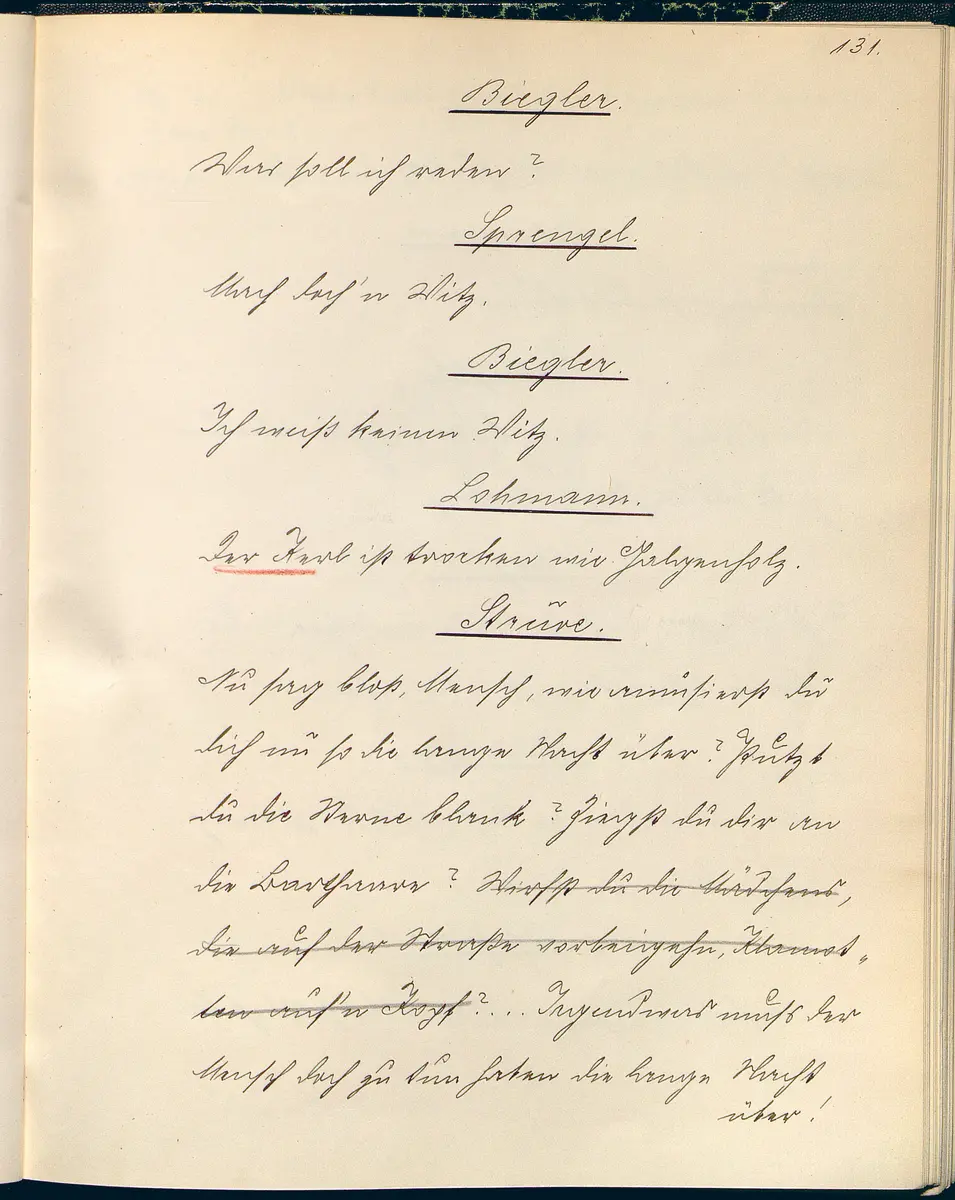 131.
Biegler.
Was soll ich reden?
Sprengel.
Mach doch'n Witz.
Biegler.
Ich weiß keinen Witz.
Lohmann.
Der Kerl ist trocken wie Galgenholz.
Strüve.
Nu sag bloß, Mensch, wie amüsierst du
dich nu so die lange Nacht über? Putzt
du die Sterne blank? Ziepst du dir an
die Barthaare? Wirfst du die Mädchens,
die auf der Straße vorbeigehn, Klamot„
ten auf'n Kopf?... Irgendwas muß der
Mensch doch zu tun haben die lange Nacht
über!